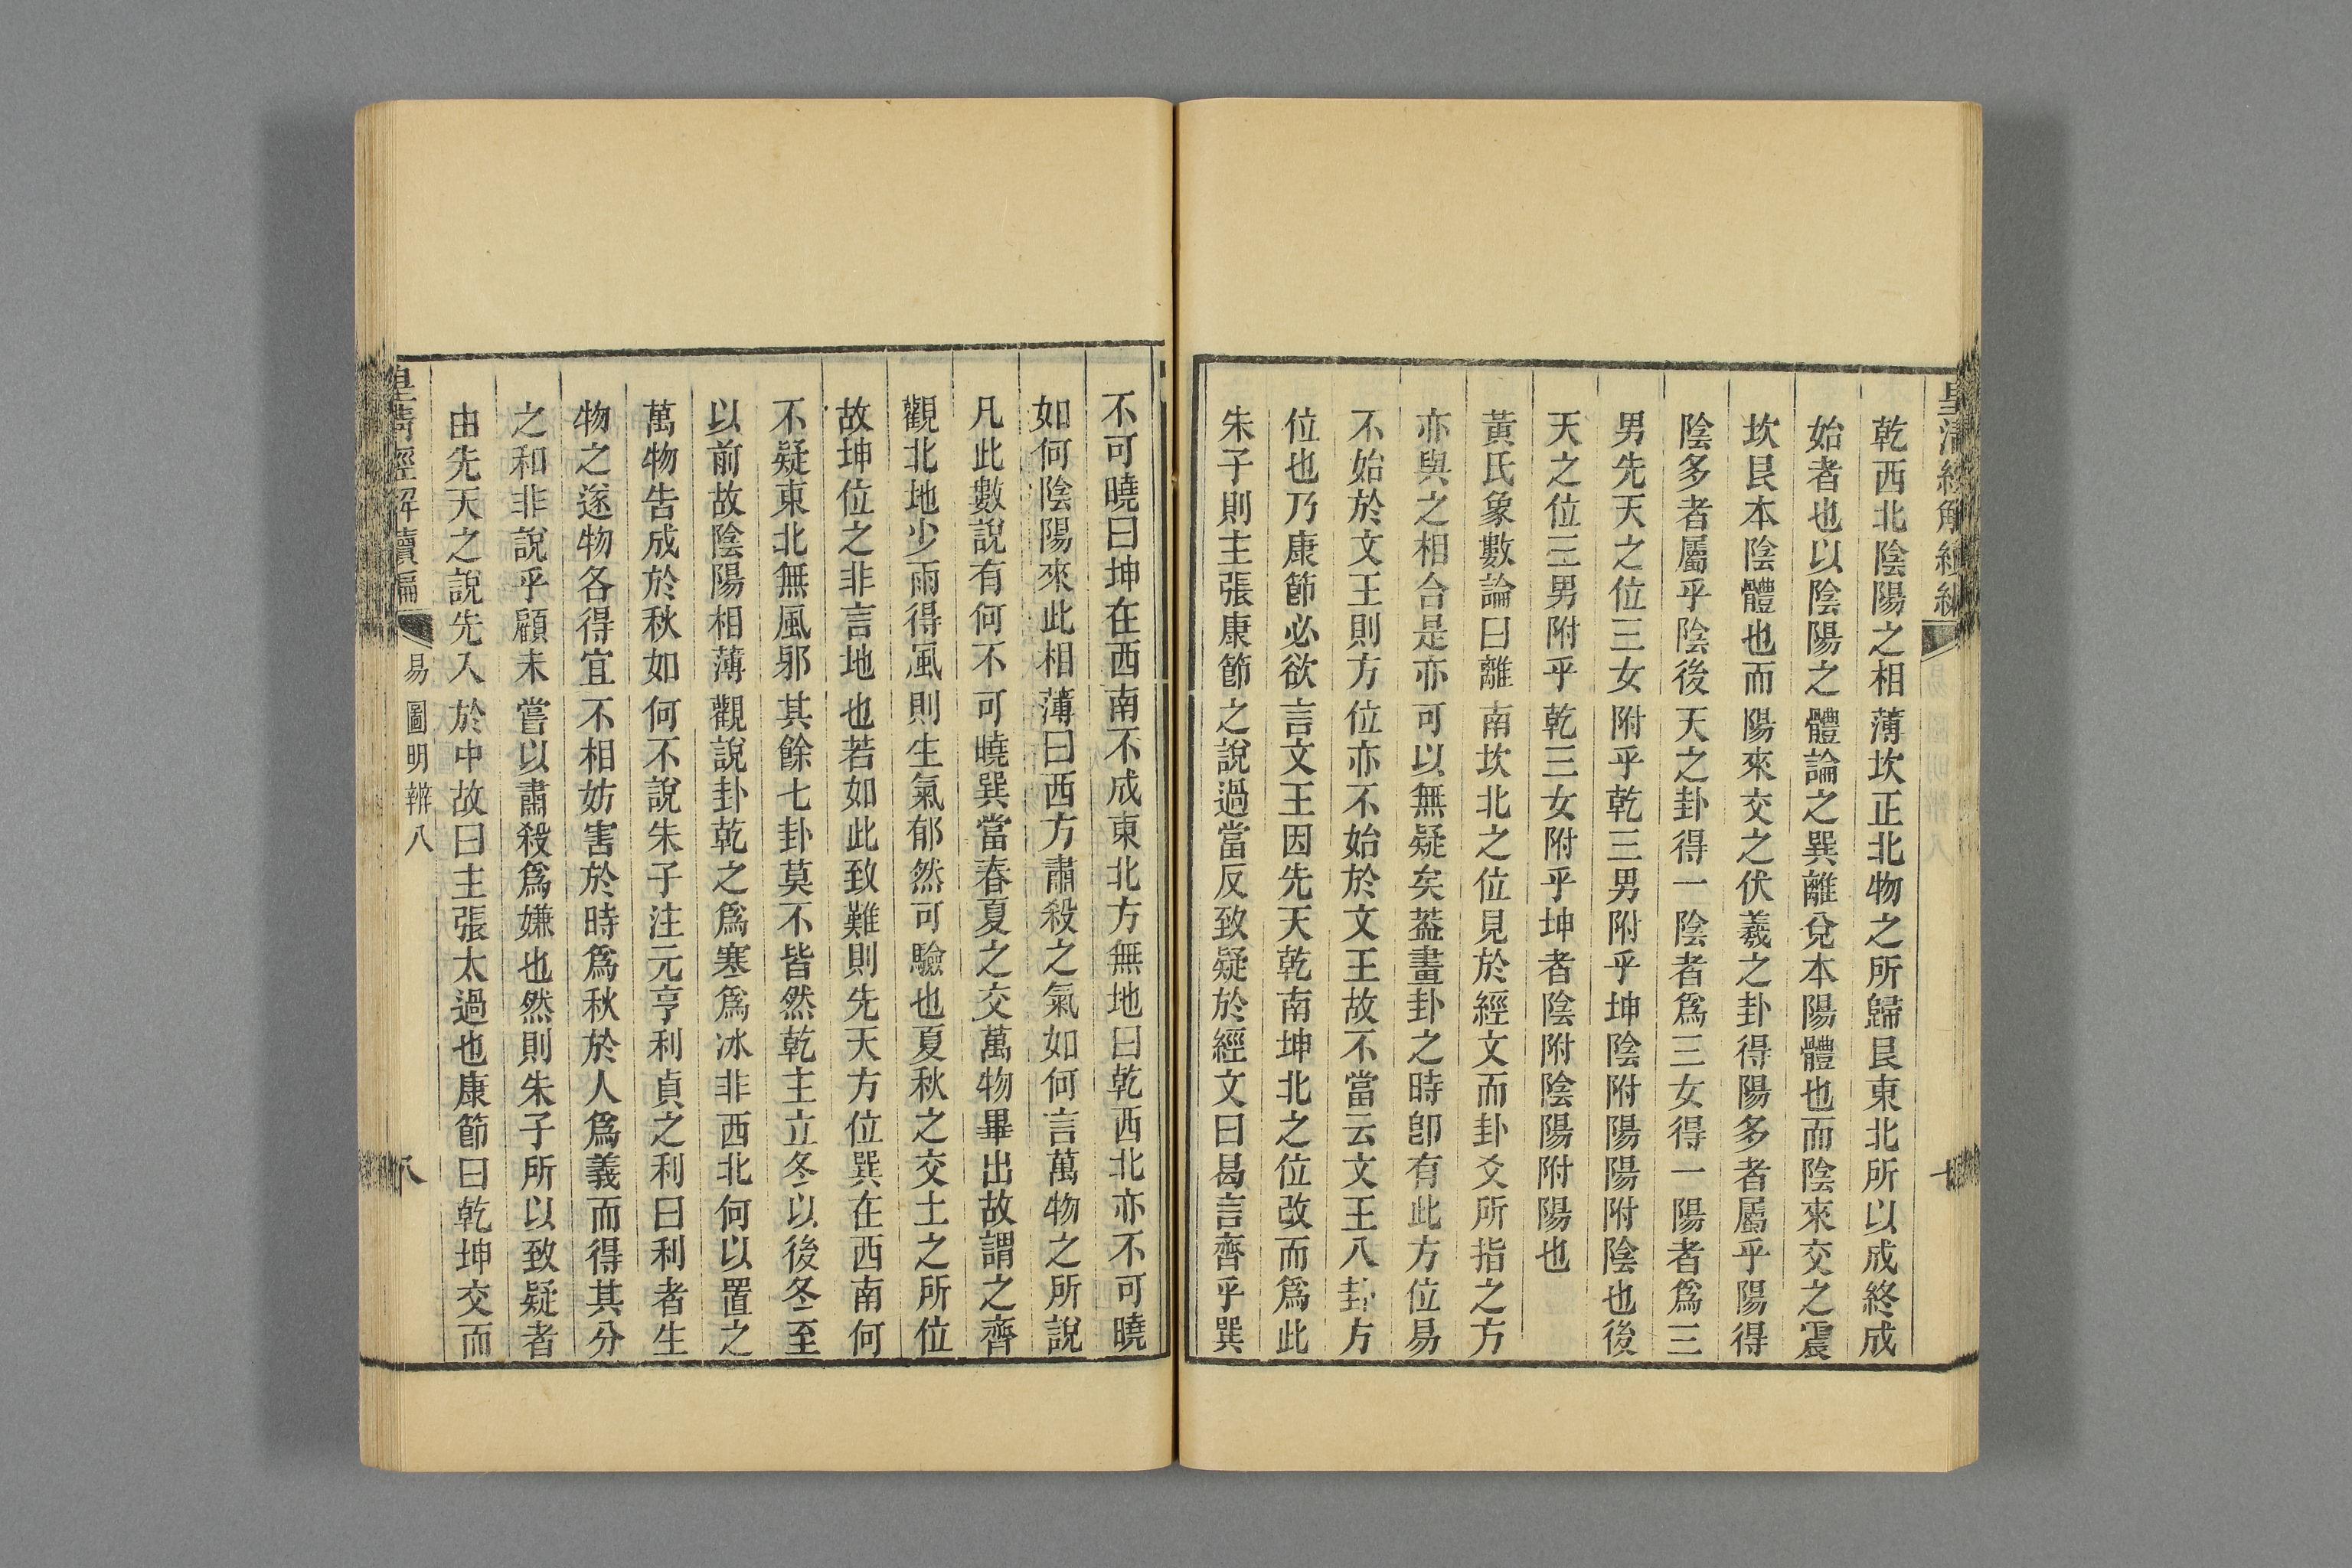 乾西北陰陽之相薄坎正北物之所歸艮東北所以成終成
始者也以陰陽之體論之巽離兌本陽體也而陰來交之震
坎艮本陰體也而陽來交之伏羲之卦得陽多者屬乎陽得
陰多者屬乎陰後天之卦得一陰者爲三女得一陽者爲三
男先天之位三女附乎乾三男附乎坤陰附陽陽附陰也後
天之位三男附乎乾三女附乎坤者陰附陰陽附陽也
黃氏象數論曰離南坎北之位見於經文而卦爻所指之方
亦與之相合是亦可以無疑矣葢畫卦之時卽有此方位易
不始於文王則方位亦不始於文王故不當云文王八卦方
位也乃康節必欲言文王因先天乾南坤北之位改而爲此
朱子則主張康節之說過當反致疑於經文曰曷言齊乎巽
不可曉曰坤在西南不成東北方無地曰乾西北亦不可曉
如何陰陽來此相薄曰西方肅殺之氣如何言萬物之所說
凡此數說有何不可曉巽當春夏之交萬物畢出故謂之齊
觀北地少雨得風則生氣郁然可驗也夏秋之交土之所位
故坤位之非言地也若如此致難則先天方位巽在西南何
不疑東北無風邪其餘七卦莫不皆然乾主立冬以後冬至
以前故陰陽相薄觀說卦乾之爲寒爲冰非西北何以置之
萬物告成於秋如何不說朱子注元亨利貞之利曰利者生
物之遂物各得宜不相妨害於時爲秋於人爲義而得其分
之和非說乎顧未嘗以肅殺爲嫌也然則朱子所以致疑者
由先天之說先入於中故曰主張太過也康節曰乾坤交而
皇淸經解續編 易圖明辨八